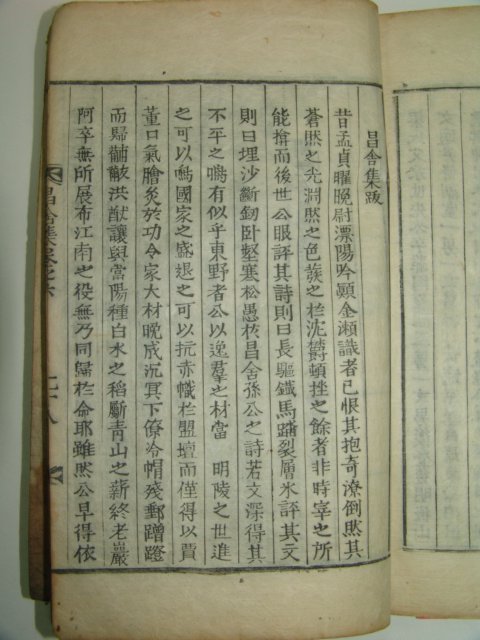 昌舍集跋
昔孟貞曜晚尉溧陽吟顥金瀨識者已恨其抱奇潦倒然其
蒼然之光淵然之色蔟之於沈欝頓挫之餘者非時宰之所
能揜而後世公眼評其詩則曰長驅鐵馬踊裂層氷評其文
則曰埋沙斷釰卧壑寒松愚於昌舍孫公之詩若文深得其
不平之鳴有似乎東野者公以逸羣之材當 明陵之世進
之可以鳴國家之盛退之可以抗赤幟於盟壇而僅得以賈
董口氣膾炙於功令家大材晚成沉冥下僚冷帽殘郵蹭蹬
而歸黼黻洪猷讓與當陽種白水之稻斸青山之薪終老巖
阿卒無所展布江南之役無乃同歸於命耶雖然公早得依
昌舍集卷之六
七十八